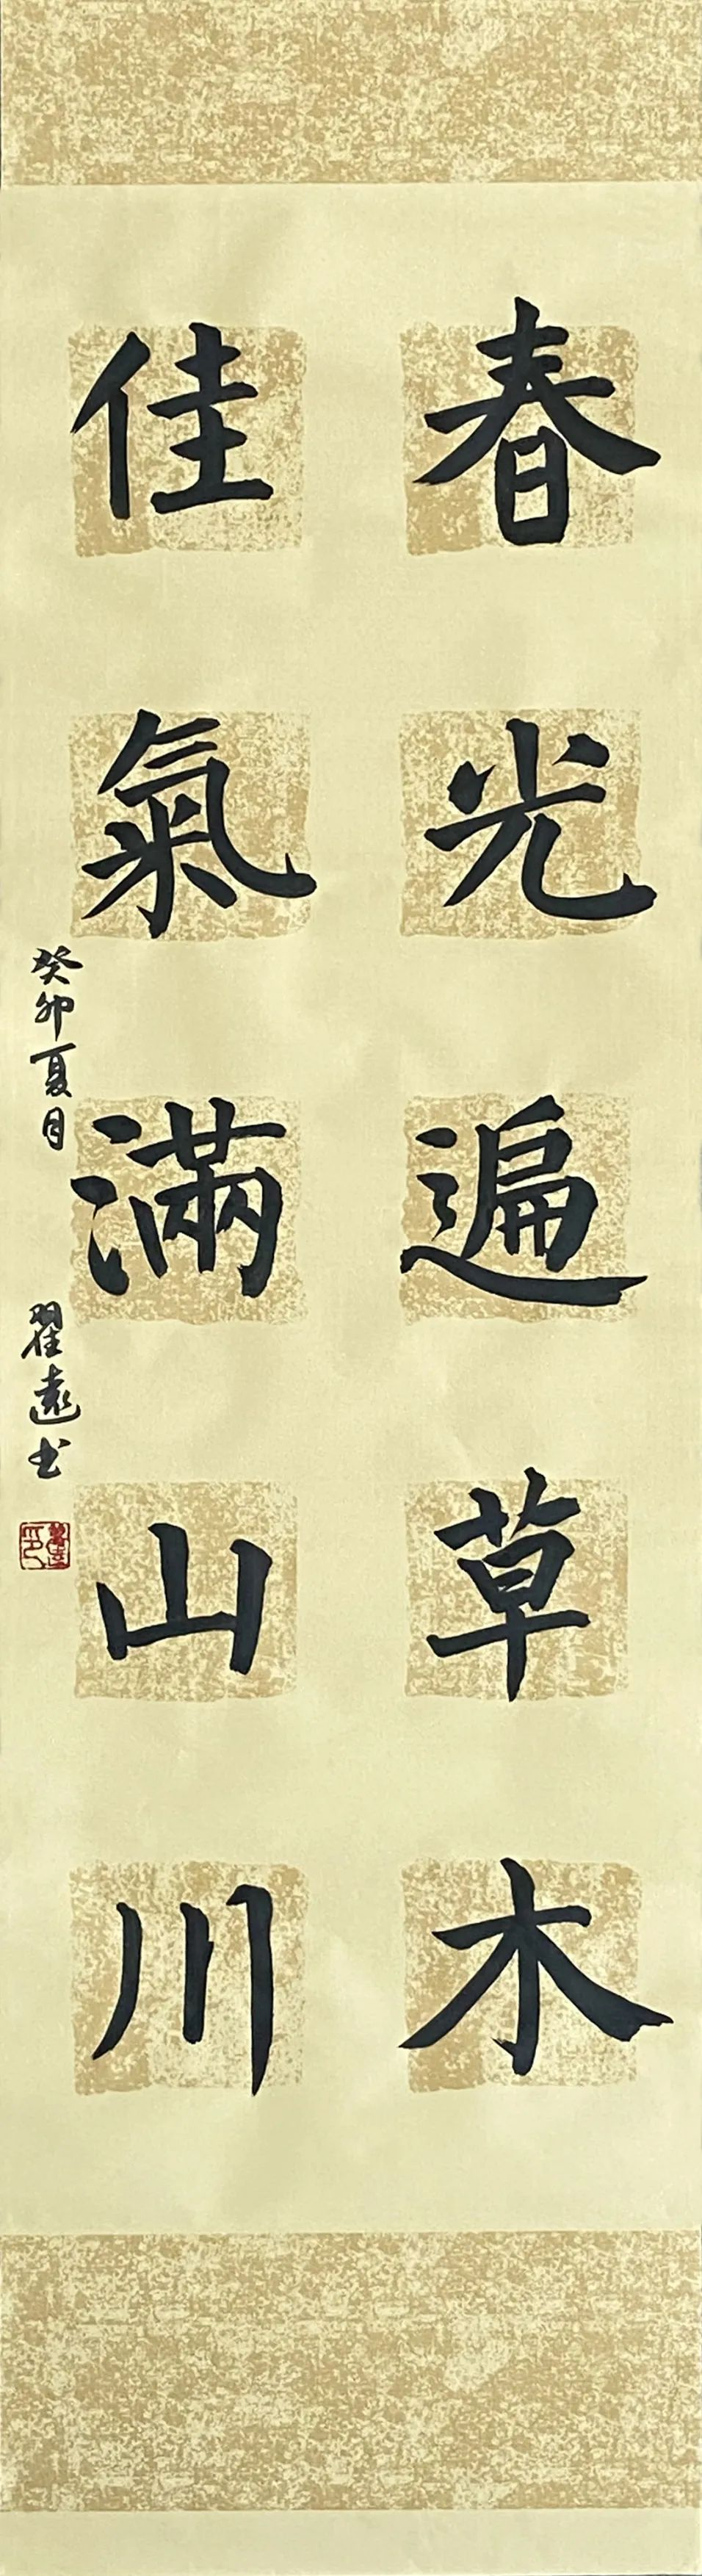 春光遍草木
佳氣滿山川
癸卯夏月
翟遠书